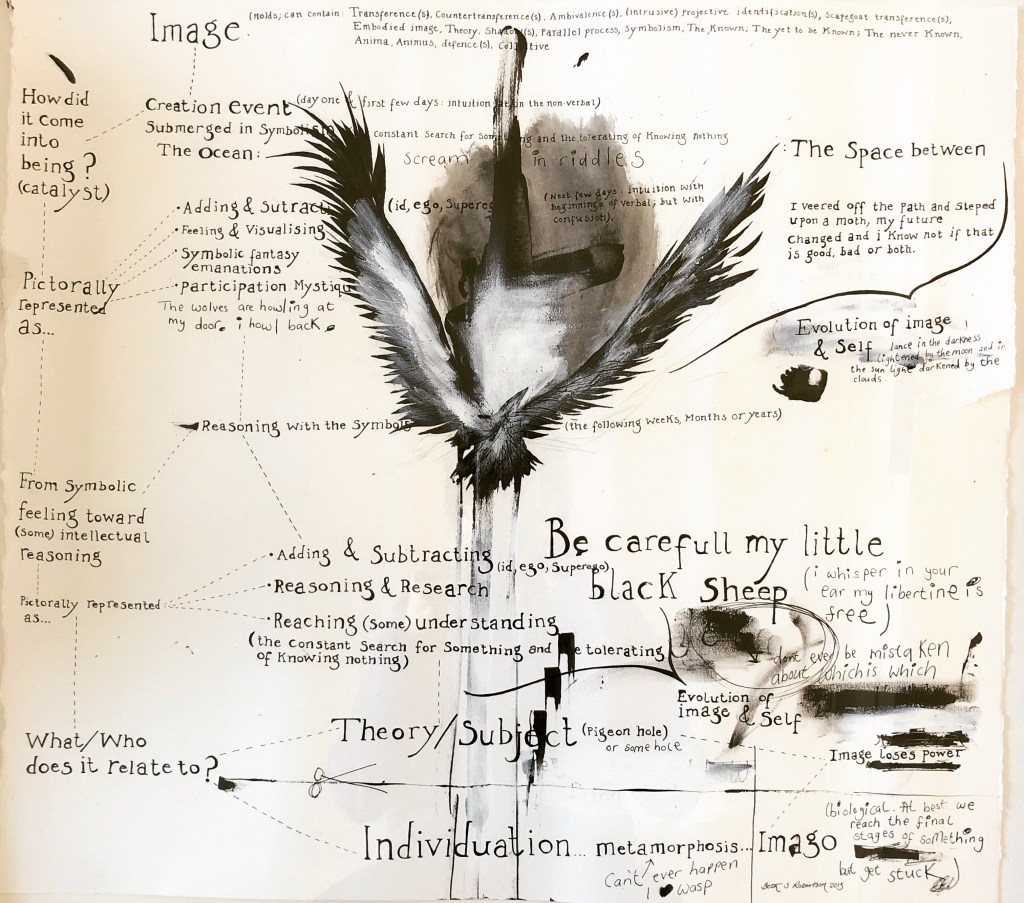 Image
(Holds; can contain: Transference(s), Countertransference(s), Ambivalence(s), (intrusive) projective identification(s), Scapegoat transference(s),
Embodied image, Theory, Shadow(s), Parallel process, Symbolism, The Known; The yet to be Known; The never Known,
Anima, Animus, defence(s), Collective
How did
it come
into
being?
(catalyst)
Creation Event (day one & first few days: intuition in the non-verbal)
Submerged in Symbolism
constant Search for Something and the tolerating of Knowing nothing
The Ocean:
Scream in riddles
: The Space between
(Next few days: intuition with
beginnings of verbal; but with
confusion).
• Adding & Sutracti (id, ego, Superego
• Feeling & Visualising
• Symbolic fantasy
emanations
• participation Mystiqu
The wolves are howling at
my door. i howl back.
I veered off the Path and Steped
upon a moth, my future
Changed and i Know not if that
is good, bad or both.
Pictorally
represented
as...
Evolution of image
& Self
lance in the darkness
lightened by the moon and in
the sun light darkened by the
clouds.
Reasoning with the Symbols
(the following weeks, Months or years)
From Symbolic
feeling toward
(Some) intellectual
reasoning
Pictorally represented
as...
• Adding & Subtracting (id, ego, Superego)
• Reasoning & Research
• Reaching (Some) understanding
(the constant Search for Something and tolerating
of Knowing nothing)
Be carefull my little
black Sheep
(i whisper in your
ear my libertine is
free)
dont ever be mistaken
about which is which
Evolution of
image & Self
What/Who
does it relate to?
Theory/Subject (Pigeon hole)
or some hole
Image loses power
Individuation... metamorphosis... Imago
Can't ever happen
I wasp
(biological. At best we
reach the final
stages of something
but get stuck)
Scott J Robertson 2013